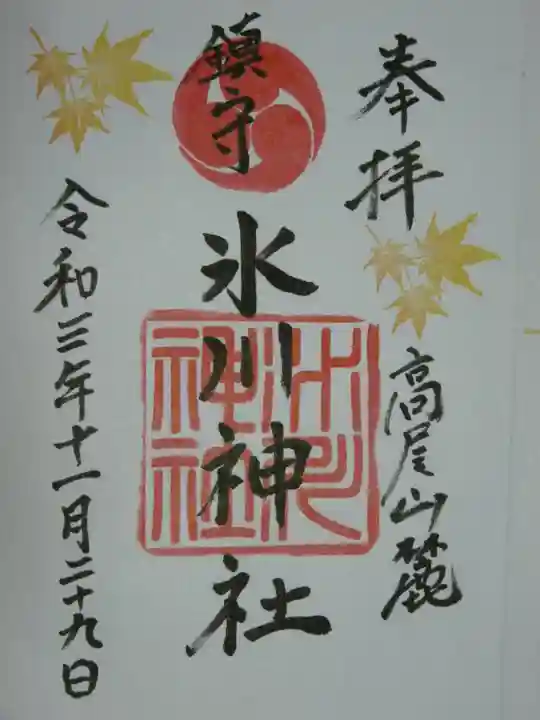 奉拝
高尾山麓
鎮守
氷川神社
令和三年十一月二十九日
氷川
神社